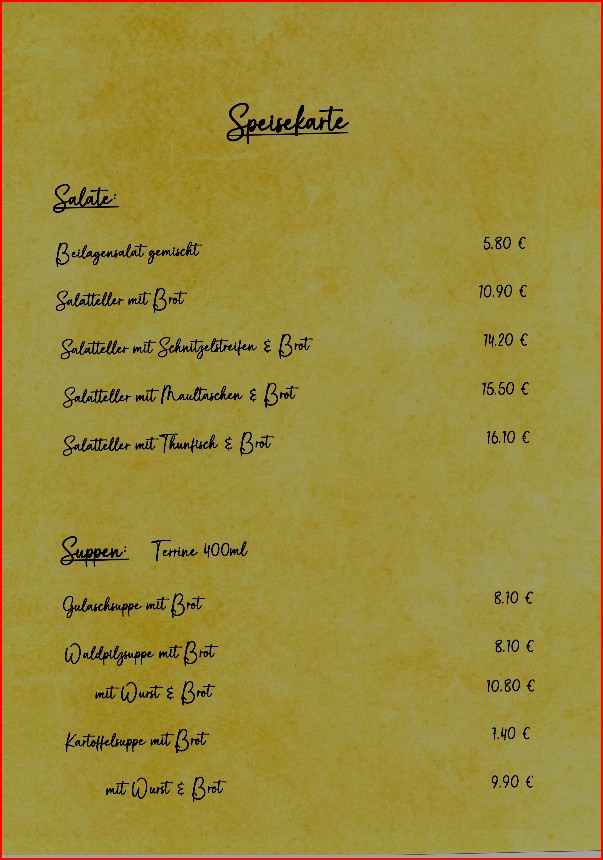 Speisekarte
Salate:
Beilagensalat gemischt 5.80 €
Salatteller mit Brot 10.90 €
Salatteller mit Schnitzelstreifen & Brot 14.20 €
Salatteller mit Maultaschen & Brot 15.50 €
Salatteller mit Thunfisch & Brot 16.10 €
Suppen: Terrine 400ml
Gulaschsuppe mit Brot 8.10 €
Waldpilzsuppe mit Brot 8.10 €
mit Wurst & Brot 10.80 €
Kartoffelsuppe mit Brot 7.40 €
mit Wurst & Brot 9.90 €